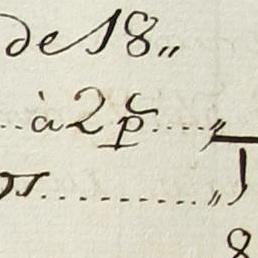 de 18 „
.. à 2 p̃ .... „
.............. „
8